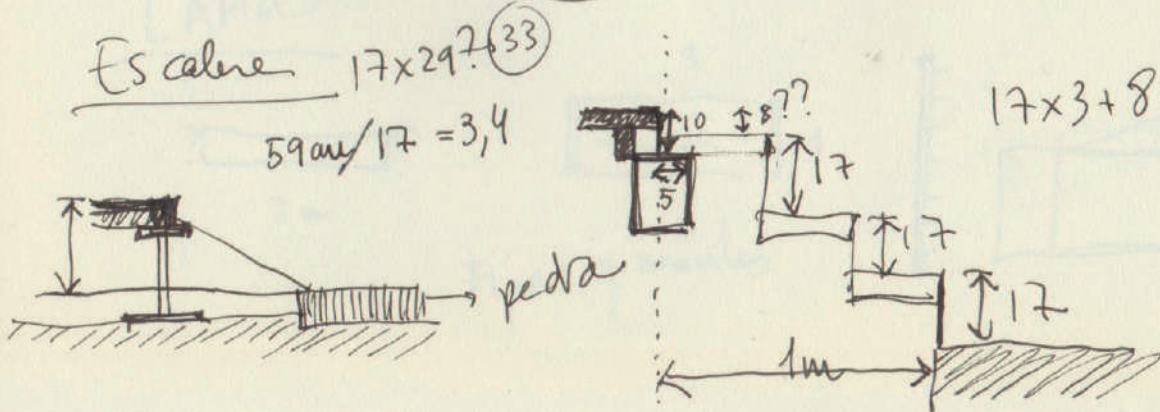 Escalere 17x29? 33
59 cm/17 = 3,4
10 8??
17x3+8
17
5
17
17
pedra
1m